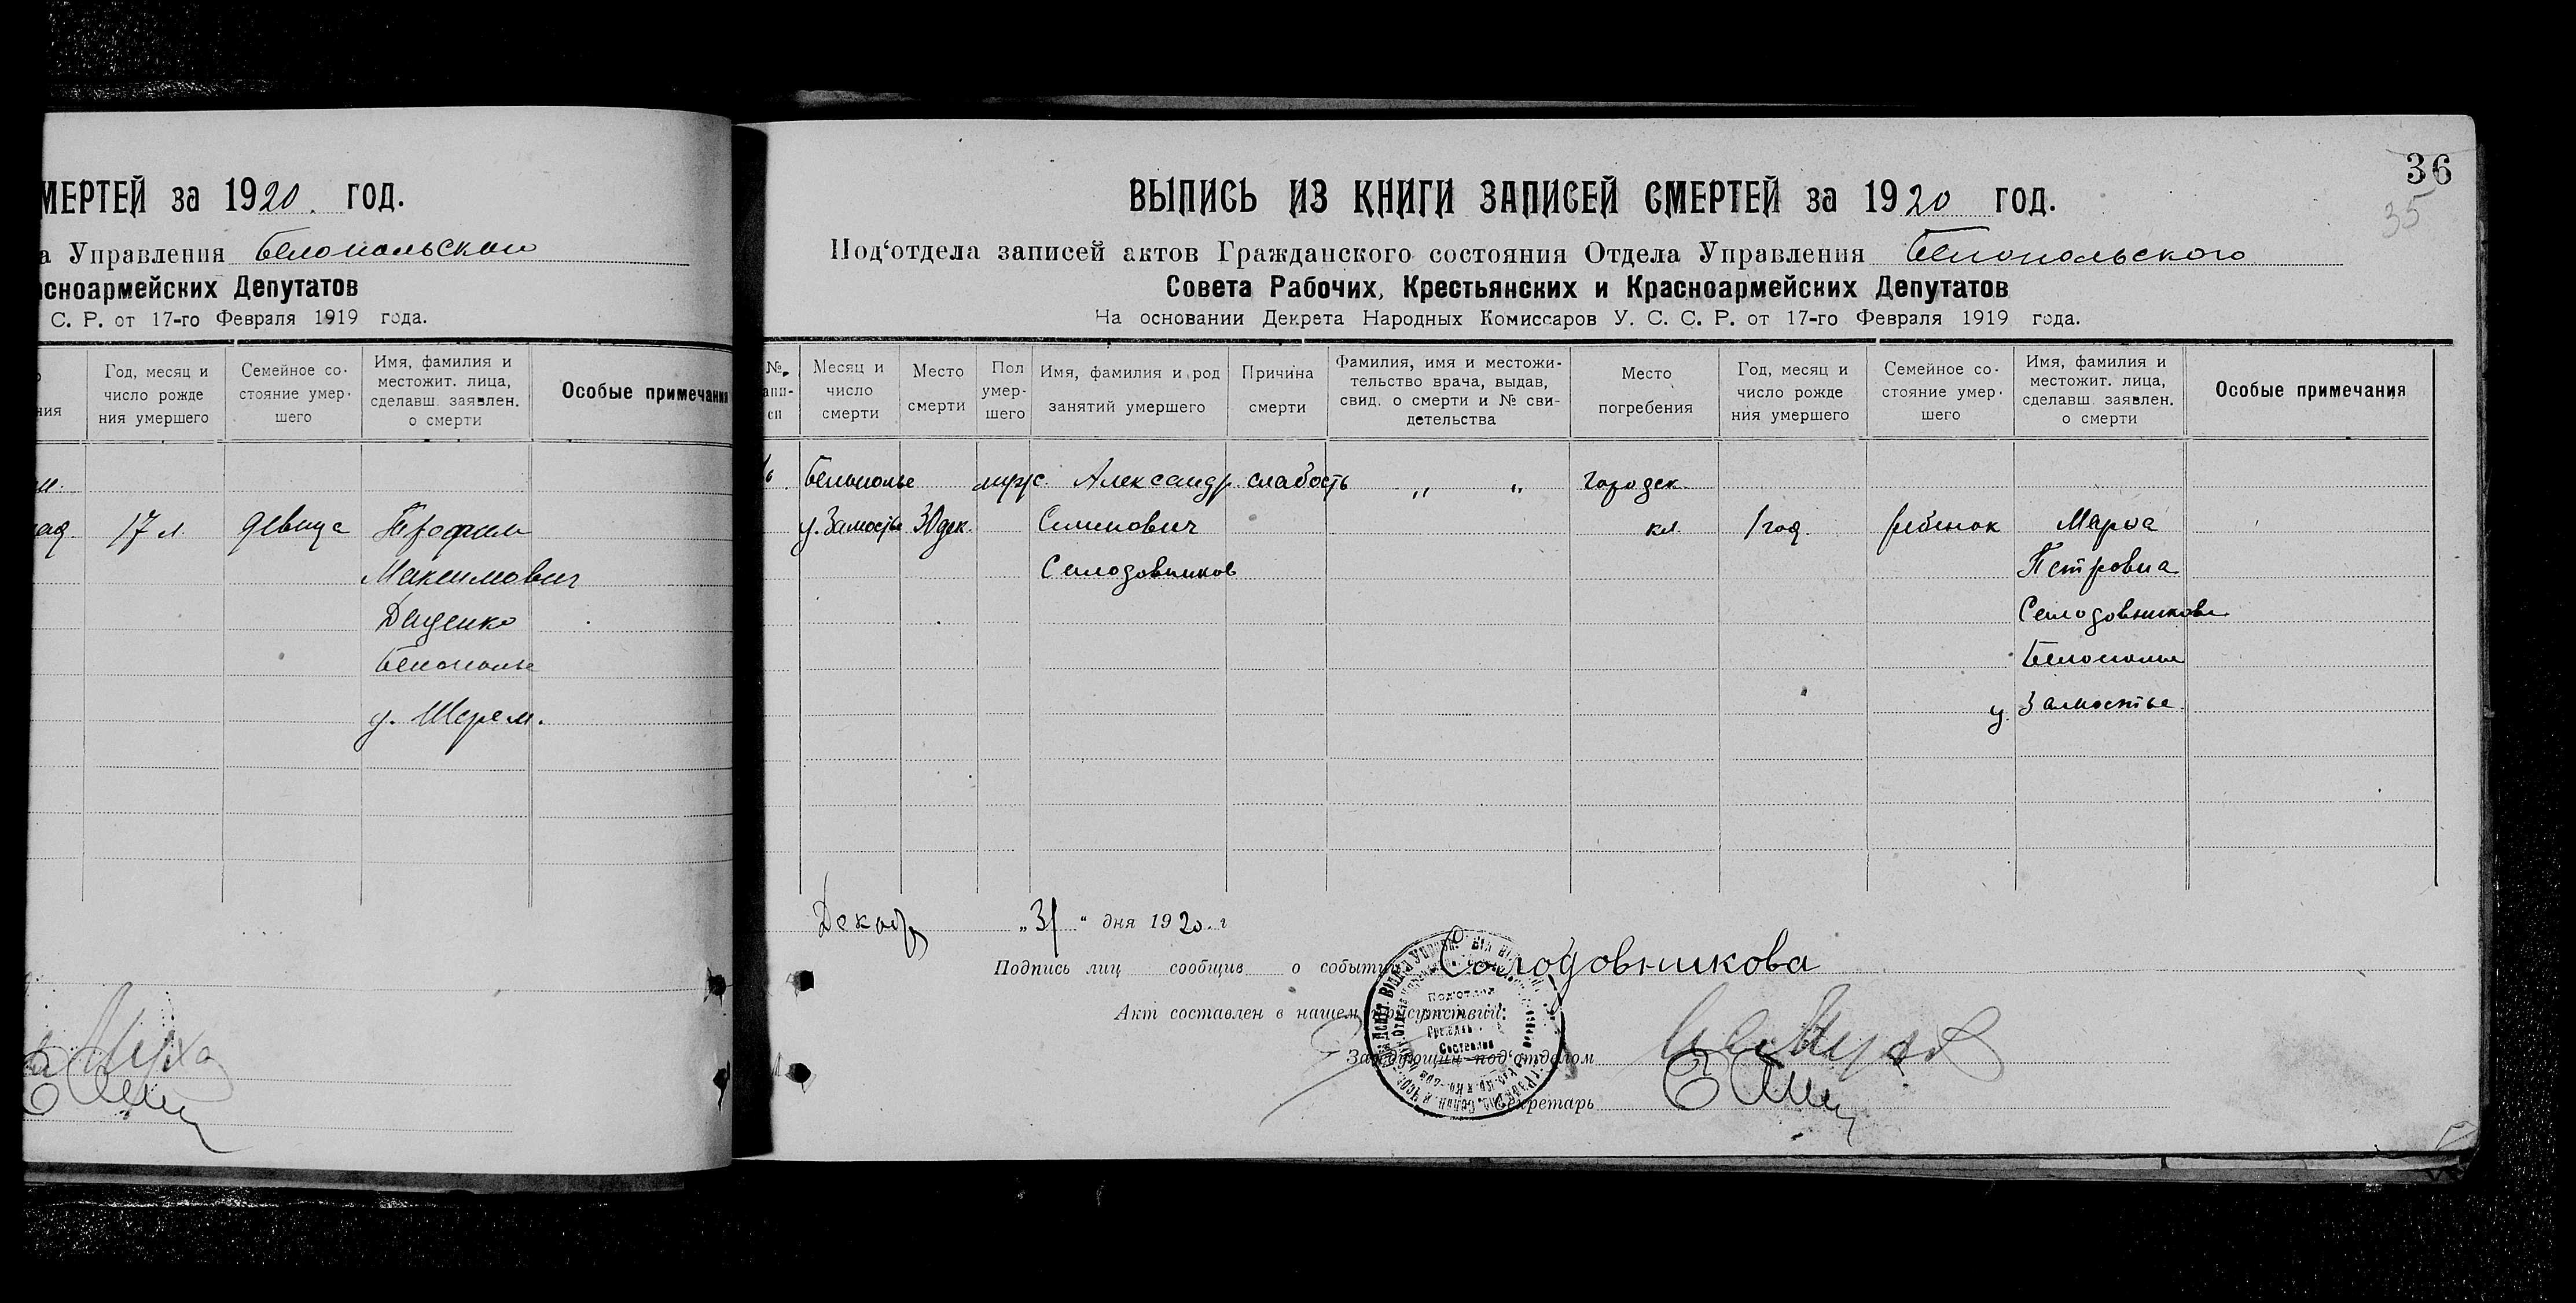 МЕРТЕЙ за 1920. год.
а Управления Белопольскои
асноармейских Депутатов
С. Р. от 17-го Февраля 1919 года.
ния
Год, месяц и
число рожде
ния умершего
Семейное со-
стояние умер-
шего
Имя, фамилия и
местожит. лица,
сделавш. заявлен.
о смерти
Особые примечания
17 л.
девица
Трофим
Максимович
Даценко
Белополье
у. Шерем.
36
35
ВЫПИСЬ ИЗ КНИГИ ЗАПИСЕЙ СМЕРТЕЙ за 1920 год.
Под‘отдела записей актов Гражданского состояния Отдела Управления Белопольского
Совета Рабочих, Крестьянских и Красноармейских Депутатов
На основании Декрета Народных Комиссаров У. С. С. Р. от 17-го Февраля 1919 года.
№
апи-
си
Месяц и
число
смерти
Место
смерти
Пол
умер-
шего
Имя, фамилия и род
занятий умершего
Причина
смерти
Фамилия, имя и местожи-
тельство врача, выдав,
свид. о смерти и № сви-
детельства
Место
погребения
Год, месяц и
число рожде
ния умершего
Семейное со-
стояние умер-
шего
Имя, фамилия и
местожит. лица,
сделавш. заявлен.
о смерти
Особые примечания
Белополье
у. Замостье
30 дек.
муж.
Александр
Семенович
Солодовников
слабость
„ „
городск.
кл.
1 год.
ребенок
Марья
Петровна
Солодовникова
Белополье
у. Замостье
Декабр „31“ дня 1920. г
Подпись лиц сообщив о событии Солодовникова
Акт составлен в нашем присутствии:
Заведующий под‘отделом
Секретарь